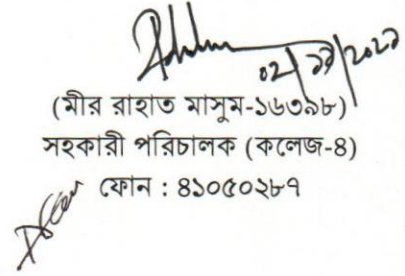 ০২/১১/২০২১
(মীর রাহাত মাসুম-১৬৩৯৮)
সহকারী পরিচালক (কলেজ-৪)
ফোন : ৪১০৫০২৮৭